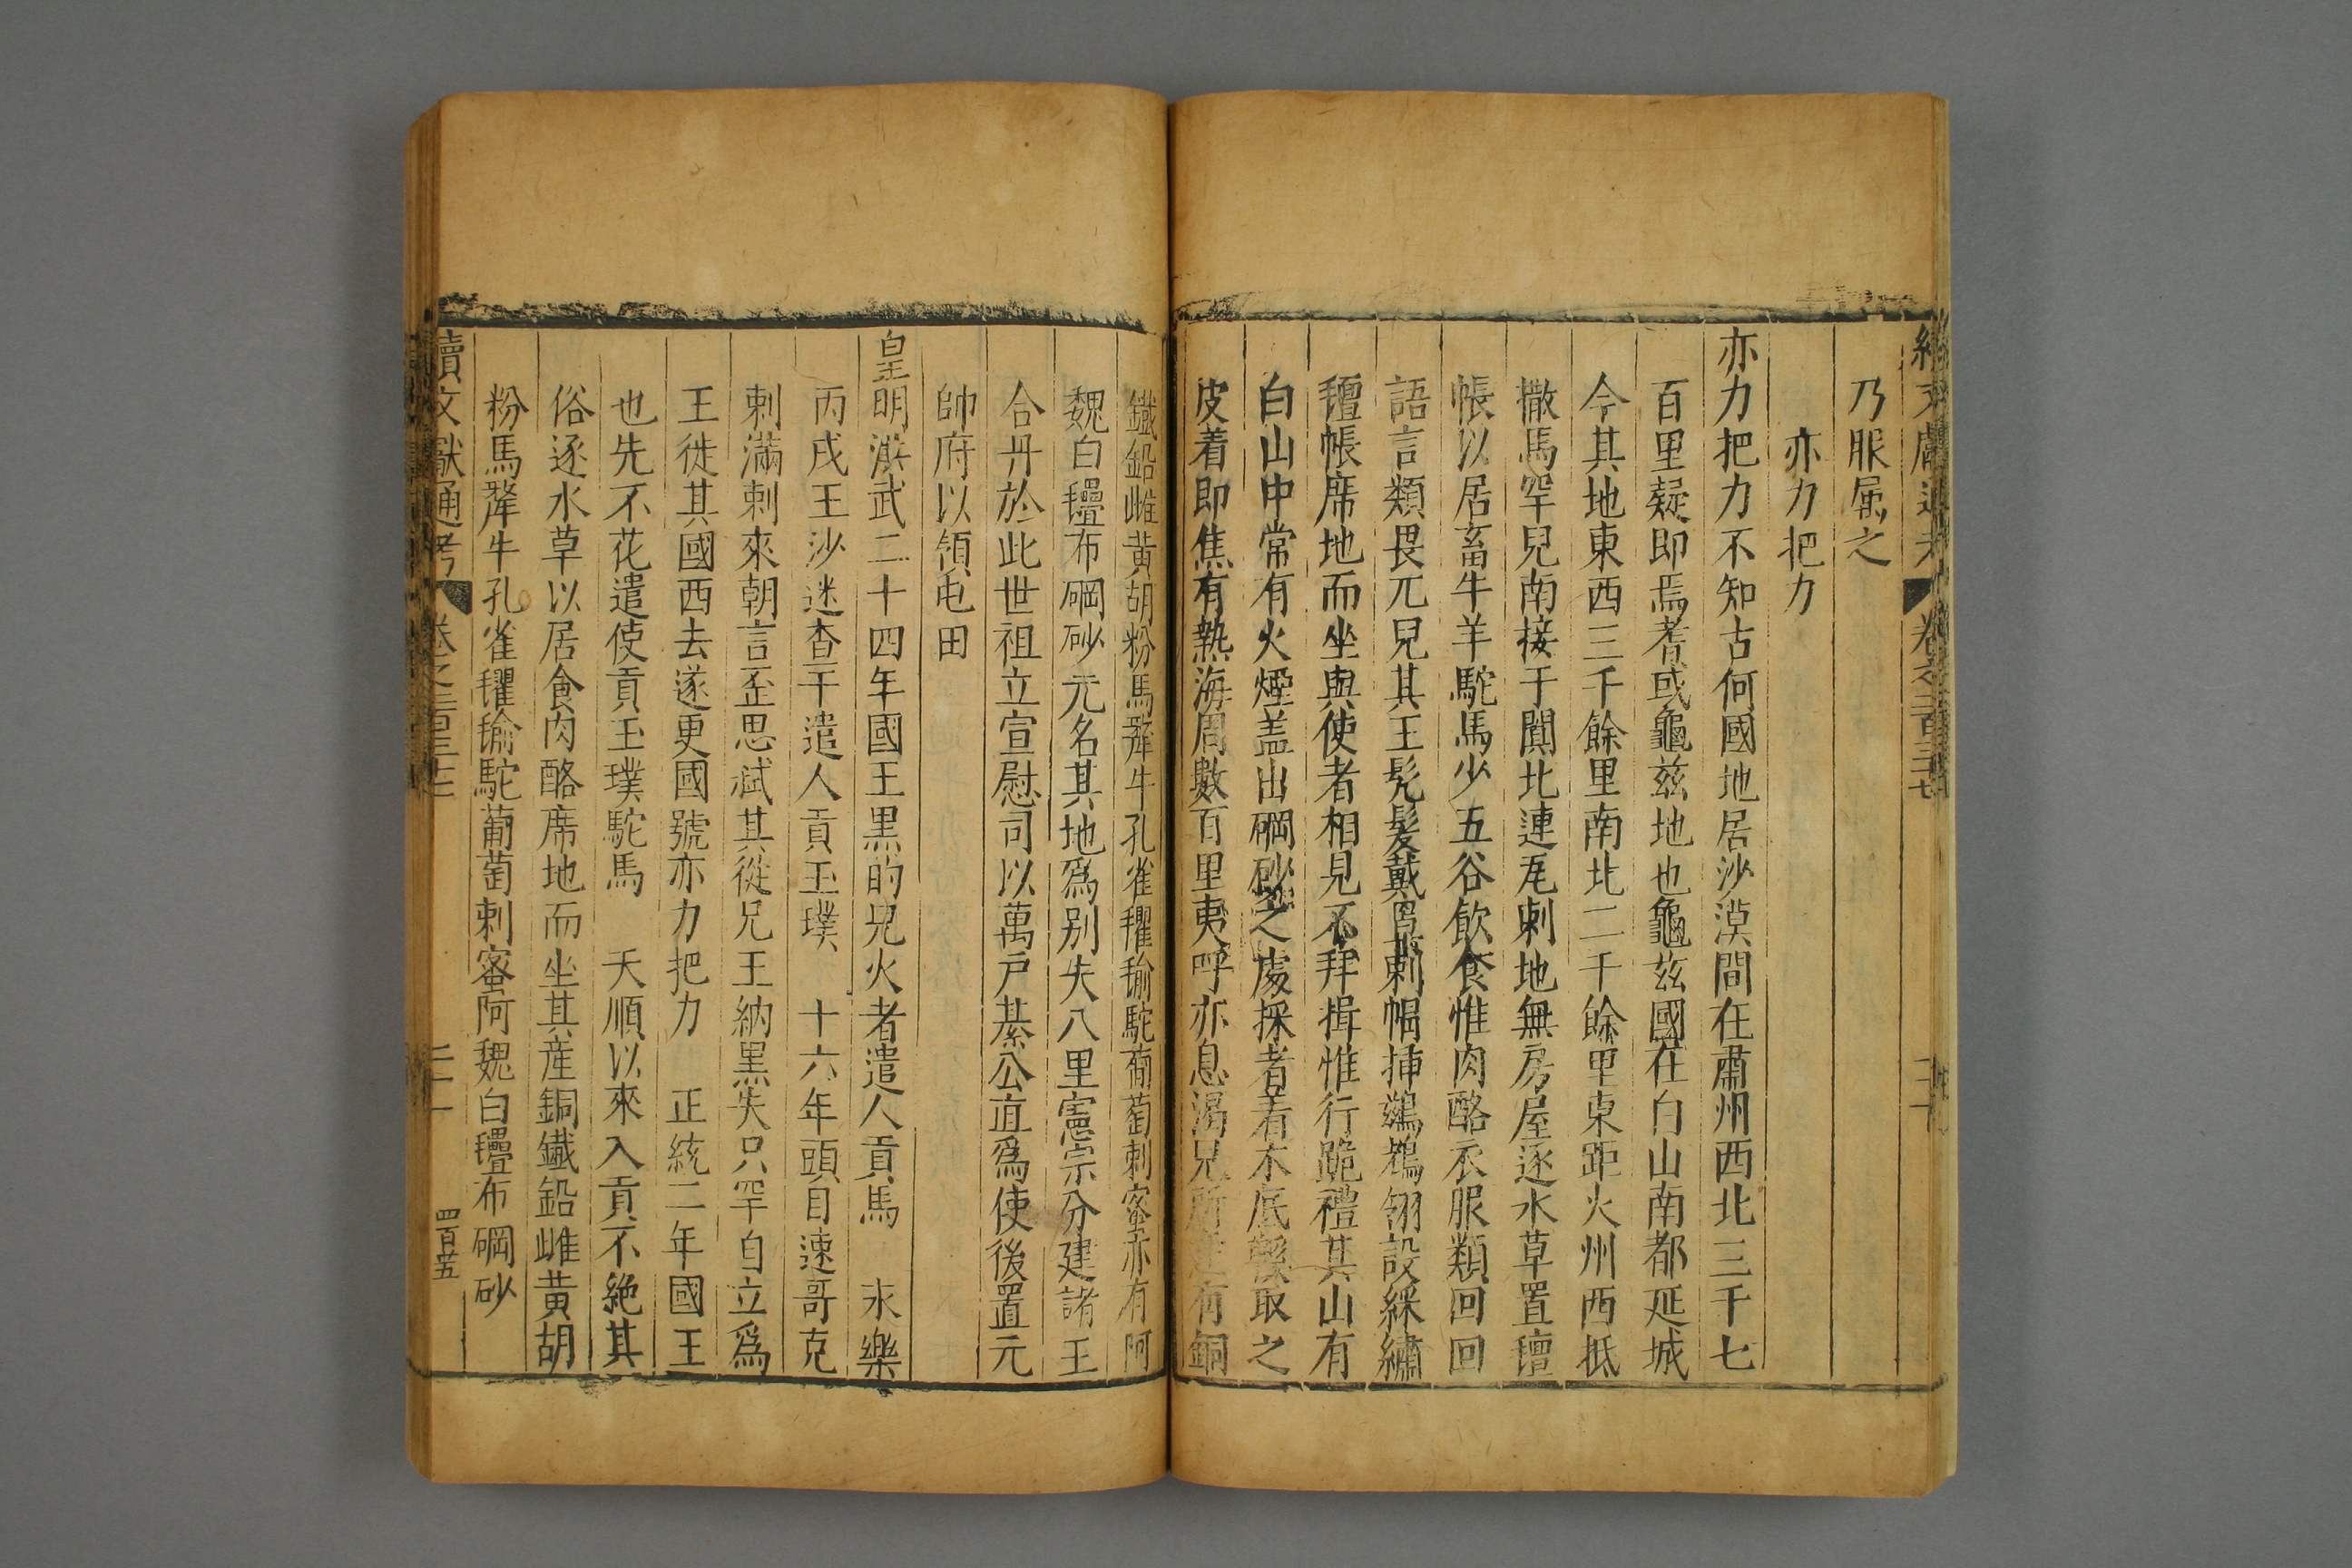 乃服属之
亦力把力
亦力把力不知古何國地居沙漠間在肅州西北三千七
百里疑即焉耆或龜茲地也龜茲國在白山南都延城
今其地東西三千餘里南北二千餘里東距火州西抵
撒馬罕兒南接于闐北連瓦剌地無房屋逐水草置氊
帳以居畜牛羊駝馬少五谷飲食惟肉酪衣服類回回
語言類畏兀兒其王髡髮戴罩剌帽揷鶿鶘翎設綵繡
氊帳席地而坐與使者相見不拜揖惟行跪禮其山有
白山中常有火煙盖出硇砂之處採者着木底鞵取之
皮着即焦有熱海周數百里夷呼亦息渴兒所産有銅
鐵鉛雌黄胡粉馬犛牛孔雀氍毹駝葡萄刺蜜亦有阿
魏白氎布硇砂元名其地爲别失八里憲宗分建諸王
合丹於此世祖立宣慰司以萬户綦公直爲使後置元
帥府以領屯田
皇明洪武二十四年國王黒的兒火者遣人貢馬 永樂
丙戌王沙迷查干遣人貢玉璞 十六年頭目速哥克
剌滿剌來朝言歪思弑其從兄王納黒失只罕自立爲
王徙其國西去遂更國號亦力把力 正統二年國王
也先不花遣使貢玉璞駝馬 天順以來入貢不絶其
俗逐水草以居食肉酪席地而坐其産銅鐵鉛雌黄胡
粉馬犛牛孔雀氍毹駝葡萄刺蜜阿魏白氎布硇砂
續文獻通考 二十一 四百五